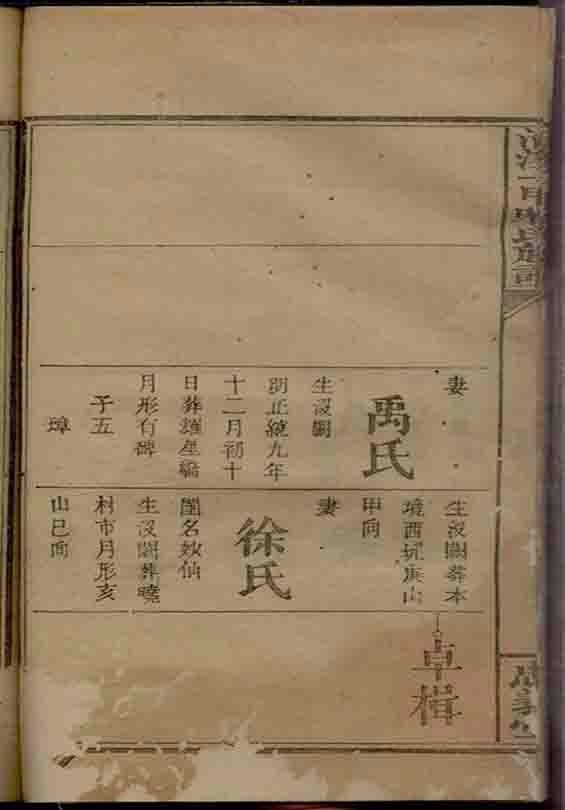 妻
禹氏
生没闕
明正統九年
十二月初十
日葬
月形有碑
子五
璋
生没闕葬本
境西坑庚山
甲向
妻
徐氏
閨名妙仙
生没闕葬曉
村市月形亥
山巳向
卓楫